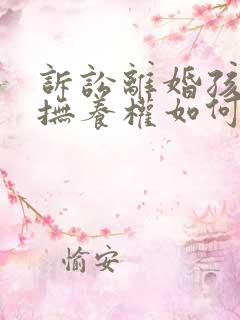 訴訟離婚孩
撫養權如何
愉安